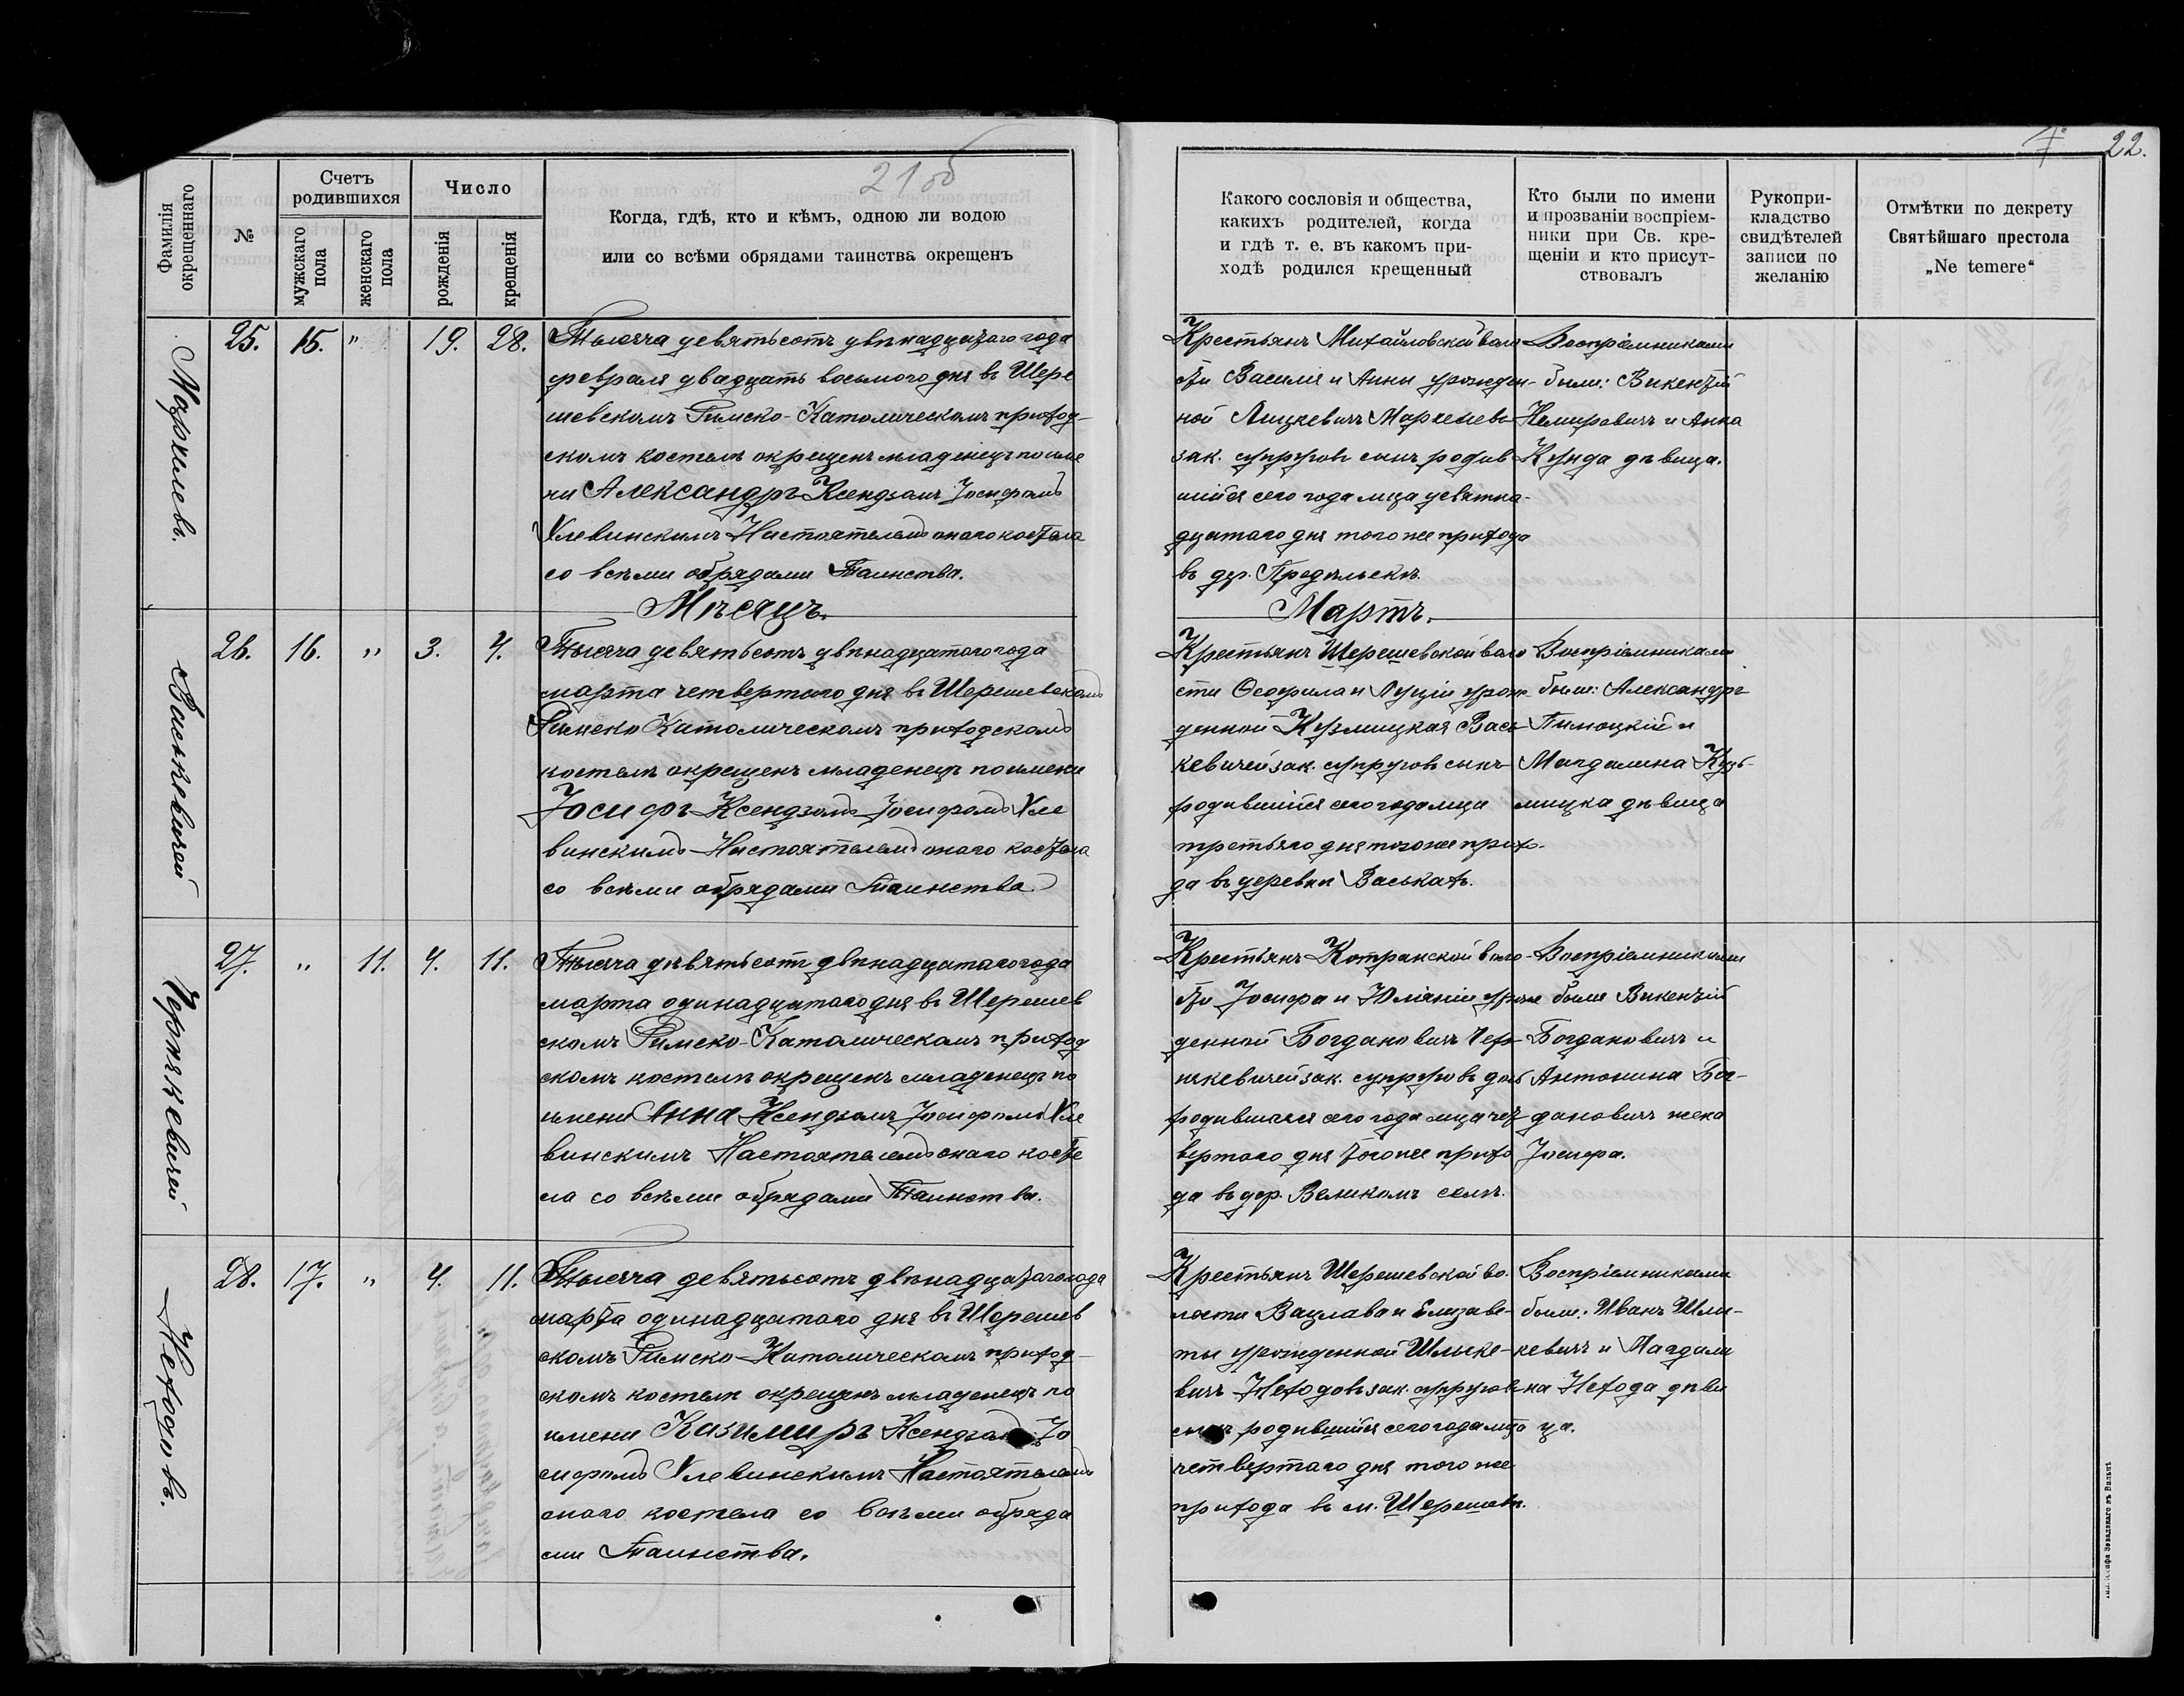 21 об
22.
Фамилія окрещеннаго
№
Счетъ родившихся
мужскаго пола
женскаго пола
Число
рожденія
крещенія
Когда, гдѣ, кто и кѣмъ, одною ли водою
или со всѣми обрядами таинства окрещенъ
Какого сословія и общества,
какихъ родителей, когда
и гдѣ т. е. въ какомъ при-
ходѣ родился крещенный
Кто были по имени
и прозваніи воспріем-
ники при Св. кре-
щеніи и кто присут-
ствовалъ
Рукопри-
кладство
свидѣтелей
записи по
желанію
Отмѣтки по декрету
Святѣйшаго престола
„Ne temere“
25. 15. " 19. 28.
Тысяча девятьсотъ двѣнадцатаго года
февраля двадцать восьмого дня въ Шере
шевскомъ Римско-Католическомъ приход-
скомъ костелѣ окрещенъ младенецъ по име
ни Александръ Ксендзомъ Іосифомъ
Улевинскимъ Настоятелемъ онаго костела
со всѣми обрядами Таинства.
Крестьянъ Михайловской воло
сти Василія и Анны урожден-
ной Лицкевичъ
зак. супруговъ сынъ родив
шійся сего года мца девятна-
дцатаго дня того же прихода
въ дер.
Воспріемниками
были: Викентій
Немировичъ и Анна
Кунда дѣвица.
Мѣсяцъ.
Мартъ.
Васькевичей
26. 16. " 3. 4.
Тысяча девятьсотъ двѣнадцатаго года
марта четвертаго дня въ Шерешевскомъ
Римско Католическомъ приходскомъ
костелѣ окрещенъ младенецъ по имени
Іосифъ Ксендзомъ Іосифомъ Уле
винскимъ Настоятелемъ онаго костела
со всѣми обрядами Таинства.
Крестьянъ Шерешевской воло
сти Ѳеофила и Луціи урож
денной Кузмицкая Вась
кевичей зак. супруговъ сынъ
родившійся сего года мца
третьяго дня того же прихо-
да въ деревни Васькахъ.
Воспріемниками
были: Александръ
и
Магдалина Кузь-
мицка дѣвица
27. " 11. 4. 11.
Тысяча девятьсотъ двѣнадцатаго года
марта одинадцатаго дня въ Шерешев
скомъ Римско-Католическомъ приход
скомъ костелѣ окрещенъ младенецъ по
имени Анна Ксендзомъ Іосифомъ Уле
винскимъ Настоятелемъ онаго косте
ла со всѣми обрядами Таинства.
Крестьянъ Котранской воло-
сти Іосифа и Юліаніи урож
денной Богдановичъ Чер
някевичей зак. супруговъ дочь
родившаяся сего года мца чет
вертаго дня того же прихо
да въ дер. Великомъ селѣ.
Воспріемниками
были Викентій
Богдановичъ и
Антонина Бог-
дановичъ жена
Іосифа.
Чернякевичей
Неходовъ.
28. 17. " 4. 11.
Тысяча девятьсотъ двѣнадцатаго года
марта одинадцатаго дня въ Шерешев
скомъ Римско-Католическомъ приход-
скомъ костелѣ окрещенъ младенецъ по
имени Казимиръ Ксендзомъ Іо
сифомъ Улевинскимъ Настоятелемъ
онаго костела со всѣми обряда
ми Таинства.
Крестьянъ Шерешевской во-
лости Вацлава и Елизаве-
ты урожденной Шлыке-
вичъ Неходовъ зак. супруговъ
сынъ родившійся сего года мца
четвертаго дня того же
прихода въ м. Шерешевѣ.
Воспріемниками
были: Иванъ Шлы-
кевичъ и Магдали
на Нехода дѣви
ца.